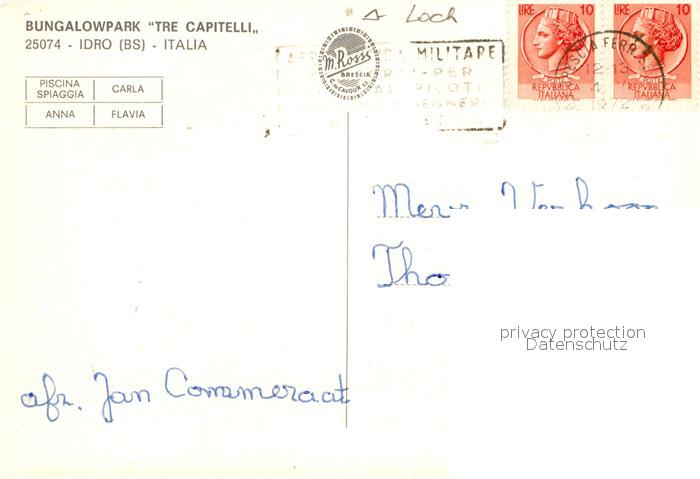 BUNGALOWPARK "TRE CAPITELLI„
25074 - IDRO (BS) - ITALIA
PISCINA SPIAGGIA
CARLA
ANNA
FLAVIA
Loch
m. Ross
BRESCIA
C. CAVOUR
MILITARE
PILOTI
LIRE 10
REPVBBLICA
ITALIANA
LIRE 10
REPVBBLICA
ITALIANA
1972
Tho
privacy protection
Datenschutz
afz. Jan Commeraat